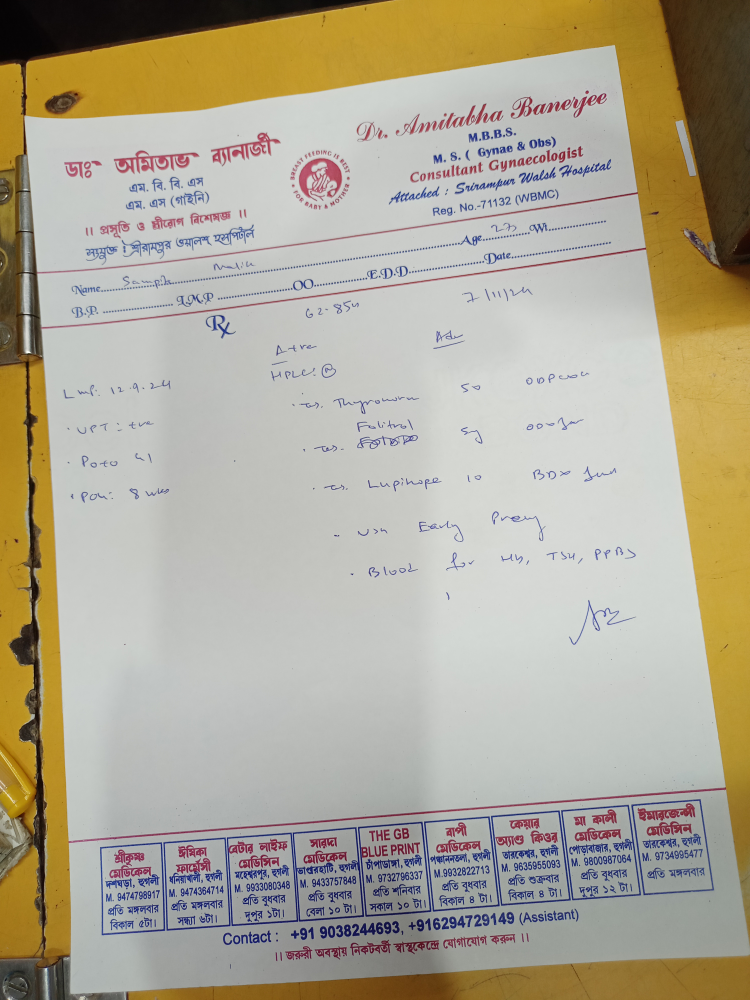 ডাঃ অমিতাভ ব্যানার্জী
এম. বি. বি. এস
এম. এস (গাইনি)
।। প্রসূতি ও স্ত্রীরোগ বিশেষজ্ঞ ।।
সংযুক্ত : শ্রীরামপুর ওয়ালশ হসপিটাল
BREAST FEEDING IS BEST
FOR BABY & MOTHER
Dr. Amitabha Banerjee
M.B.B.S.
M. S. ( Gynae & Obs)
Consultant Gynaecologist
Attached : Srirampur Walsh Hospital
Reg. No.-71132 (WBMC)
Name Age 23 Wt.
B.P. L.M.P OO E.D.D Date
Rx
7/11/24
A +ve
Adv
HPLC: N
Lmp: 12.9.24
UPT: +ve
P0+0
POG: 8 wks
50
Folitrol 5
10 BDX
Early Preg
Blood for Hb, TSH, PPBS
শ্রীকৃষ্ণ মেডিকেল
দশঘড়া, হুগলী
M. 9474798917
প্রতি মঙ্গলবার
বিকাল ৫টা।
ঈথিকা ফার্মেসী
ধনিয়াখালী, হুগলী
M. 9474364714
প্রতি মঙ্গলবার
সন্ধ্যা ৬টা।
বেটার লাইফ মেডিসিন
মহেশ্বরপুর, হুগলী
M. 9933080348
প্রতি বুধবার
দুপুর ১টা।
সারদা মেডিকেল
ভাণ্ডারহাটি, হুগলী
M. 9433757848
প্রতি বুধবার
বেলা ১০ টা।
THE GB BLUE PRINT
চাঁপাডাঙ্গা, হুগলী
M. 9732796337
প্রতি শনিবার
সকাল ১০ টা।
বাপী মেডিকেল
পঞ্চাননতলা, হুগলী
M.9932822713
প্রতি বুধবার
বিকাল ৪ টা।
কেয়ার অ্যাণ্ড কিওর
তারকেশ্বর, হুগলী
M. 9635955093
প্রতি শুক্রবার
বিকাল ৪ টা।
মা কালী মেডিকেল
পোড়াবাজার, হুগলী
M. 9800987064
প্রতি বুধবার
দুপুর ১২ টা।
ইমারজেন্সী মেডিসিন
তারকেশ্বর, হুগলী
M. 9734995477
প্রতি মঙ্গলবার
Contact : +91 9038244693, +916294729149 (Assistant)
।। জরুরী অবস্থায় নিকটবর্তী স্বাস্থ্যকেন্দ্রে যোগাযোগ করুন ।।